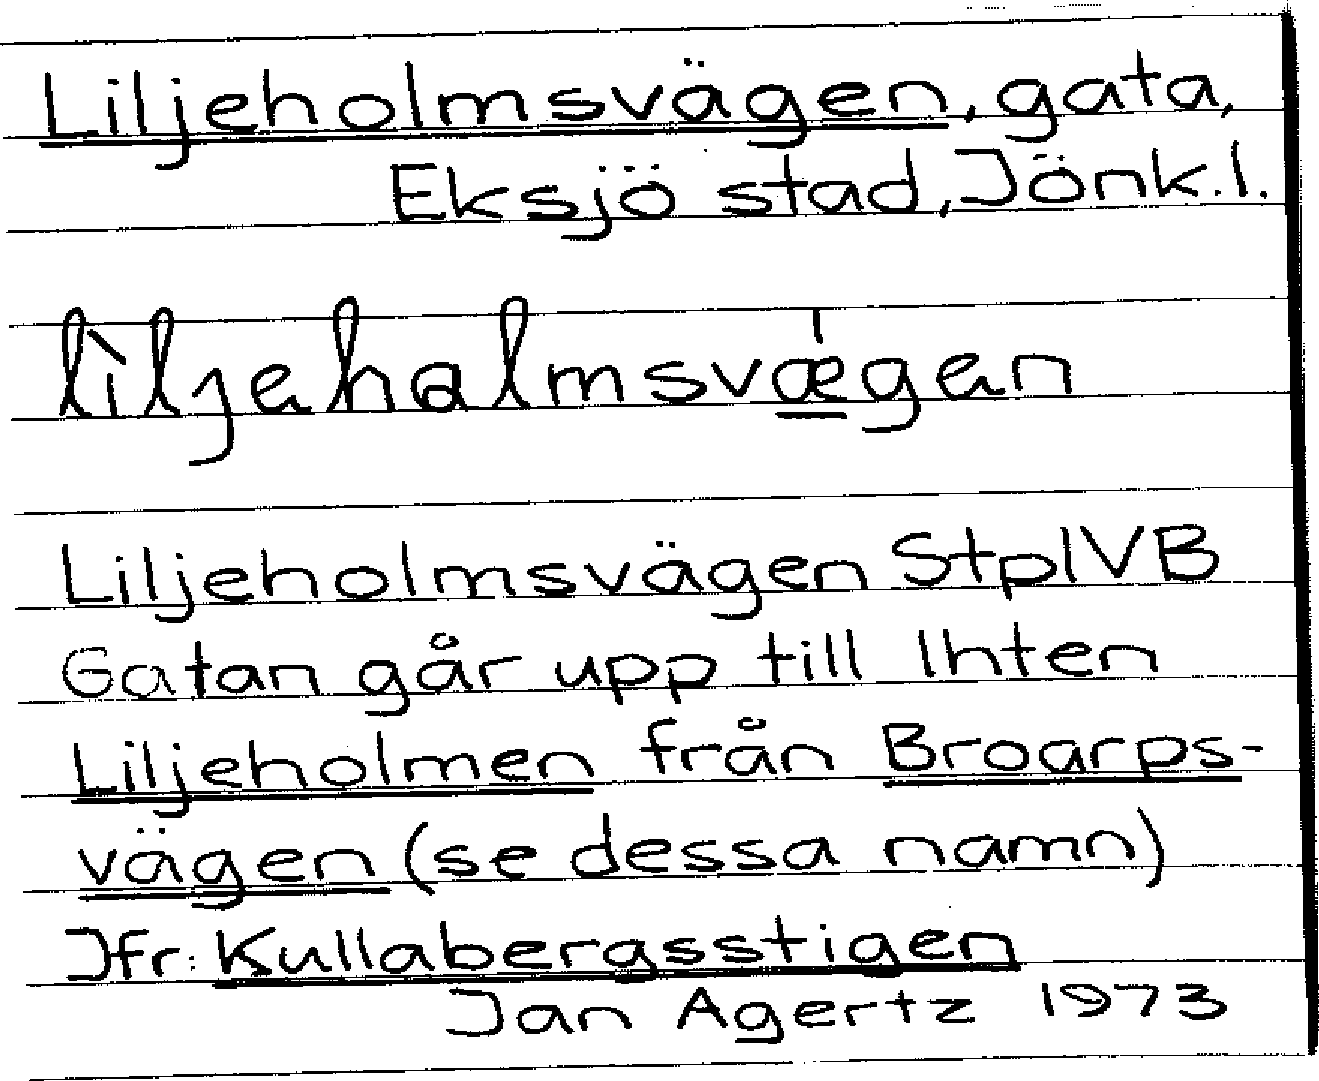 Liljeholmsvägen, gata,
Eksjö stad, Jönk.l.
lìljeholmsvæ̲̍gen
Liljeholmsvägen StplVB
Gatan går upp till Ihten
Liljeholmen från Broarps-
vägen (se dessa namn)
Jfr: Kullabergsstigen
Jan Agertz 1973